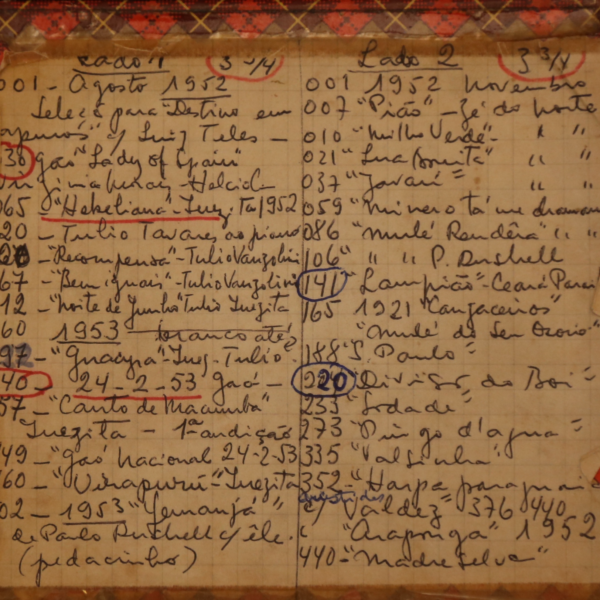 Lado 1 3 3/4
001 - Agosto 1952
Seleçõ para "Destino em
apuros" c/ Luiz Teles -
36 gaó "Lady of Spain"
065 - "Hekeliana" - Inez. Ta/1952
20 - Tulio Tavares ao piano
20 - "Recompensa" - Tulio Vanzolini
67 - "Bem iguais" - Tulio Vanzolini
12 - "Noite de Junho" Tulio Inezita
60 1953 branco até
97 - "Guacyra" - Inez - Tulio
40 - 24-2-53 gaó -
57 - "Canto de Macumba"
Inezita - 1ª audição
49 - "gaó nacional 24-2-53
60 - "Uirapurú" - Inezita
02 - 1953 "Yemanjá"
de Paulo Rushell c/ êle.
(pedacinho)
Lado 2 3 3/4
001 1952 novembro
007 "Pião" - Zé do Norte
010 "Milho Verde" - " "
021 "Lua bonita" " "
037 "Javari" " "
059 "Minero tá me chamam
086 "Mulé Rendêra" " "
106 " " " P. Rushell
141 "Lampião" - Ceará
165 1921 "Cangaceiros"
"Mulé do Seu Ozorio"
188 "S. Paulo"
220 "Divisor do Boi"
253 "Sodade"
273 "Pingo d'agua"
335 "Valsinha"
352 - "Harpa paraguai
c/ Valdez" 376 440
"Araponga" 1952
440 - "Madre Selva"